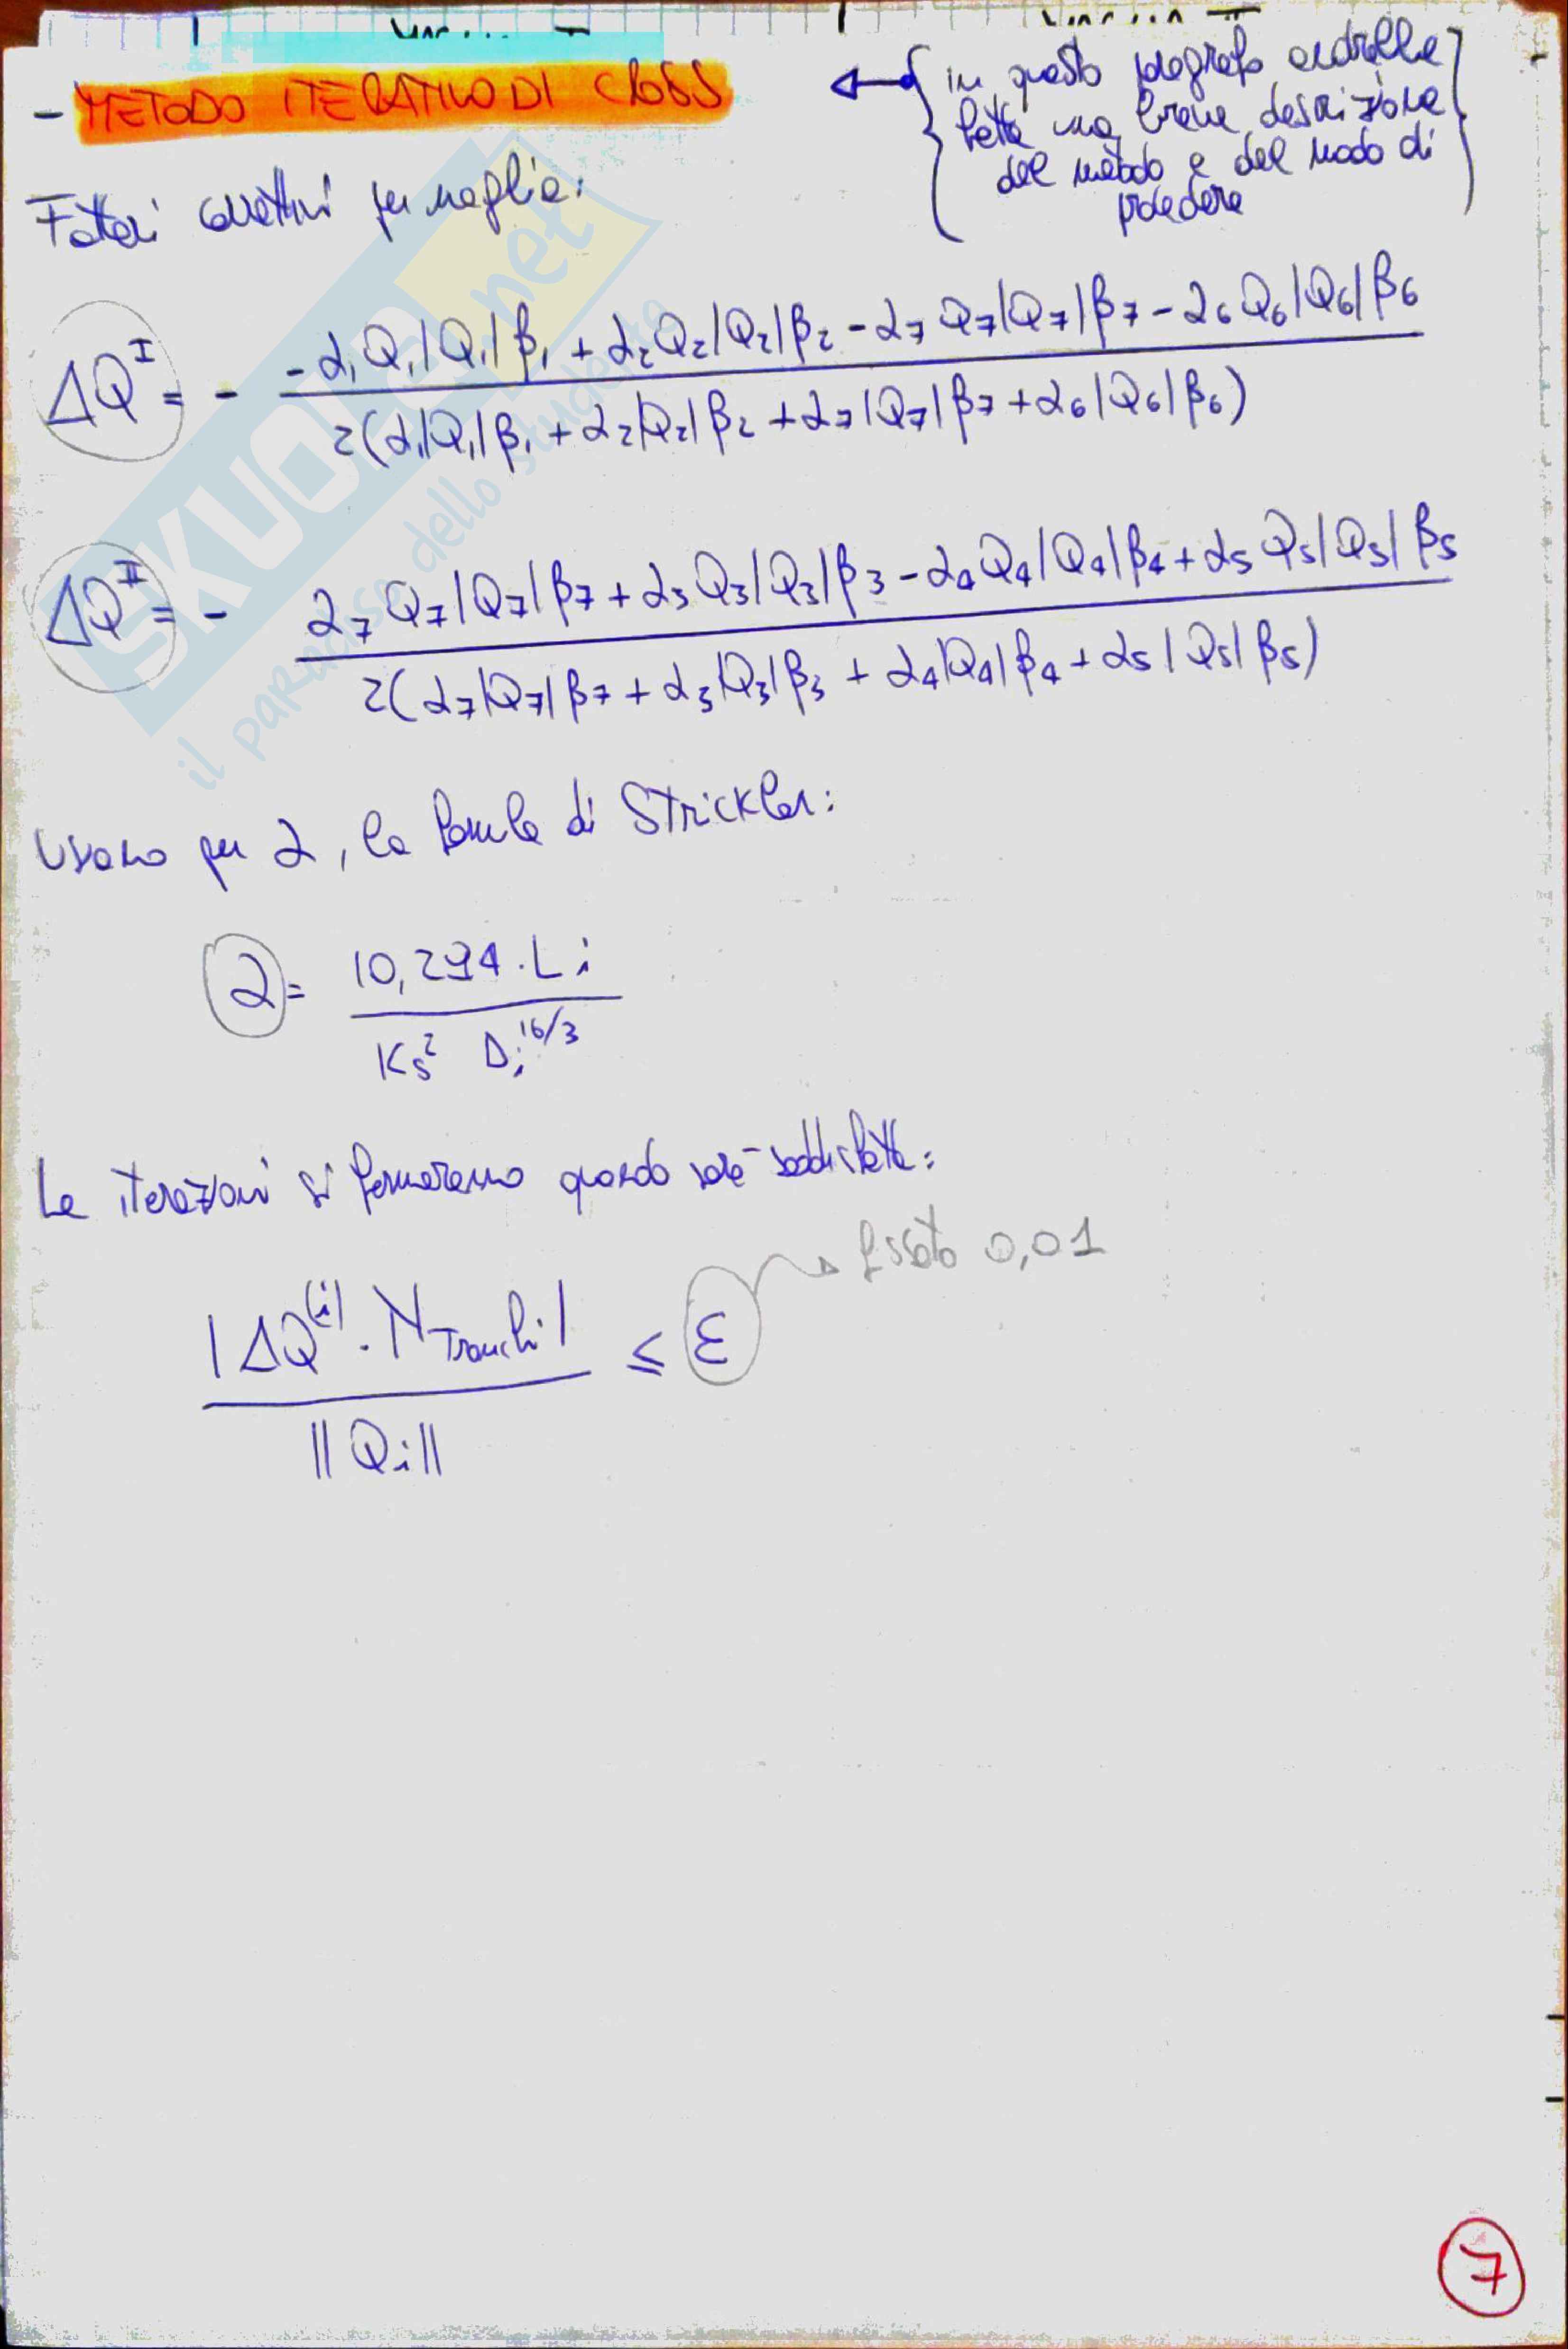 - METODO ITERATIVO DI CROSS
in questo paragrafo andrebbe
fatta una breve descrizione
del metodo e del modo di
procedere
Fattori correttivi per maglia:
ΔQ^I = - (-α₁Q₁|Q₁|β₁ + α₂Q₂|Q₂|β₂ - α₇Q₇|Q₇|β₇ - α₆Q₆|Q₆|β₆) / 2(α₁|Q₁|β₁ + α₂|Q₂|β₂ + α₇|Q₇|β₇ + α₆|Q₆|β₆)
ΔQ^II = - (α₇Q₇|Q₇|β₇ + α₃Q₃|Q₃|β₃ - α₄Q₄|Q₄|β₄ + α₅Q₅|Q₅|β₅) / 2(α₇|Q₇|β₇ + α₃|Q₃|β₃ + α₄|Q₄|β₄ + α₅|Q₅|β₅)
Usano per α, la formula di Strickler:
α = 10,294 · Li / Ks² Di^16/3
Le iterazioni si fermeranno quando sarà soddisfatta:
|ΔQ^(i) · N Tronchi| / ||Qi|| ≤ ε
fissato 0,01
7
SKUOLA.net
il paradiso dello studente